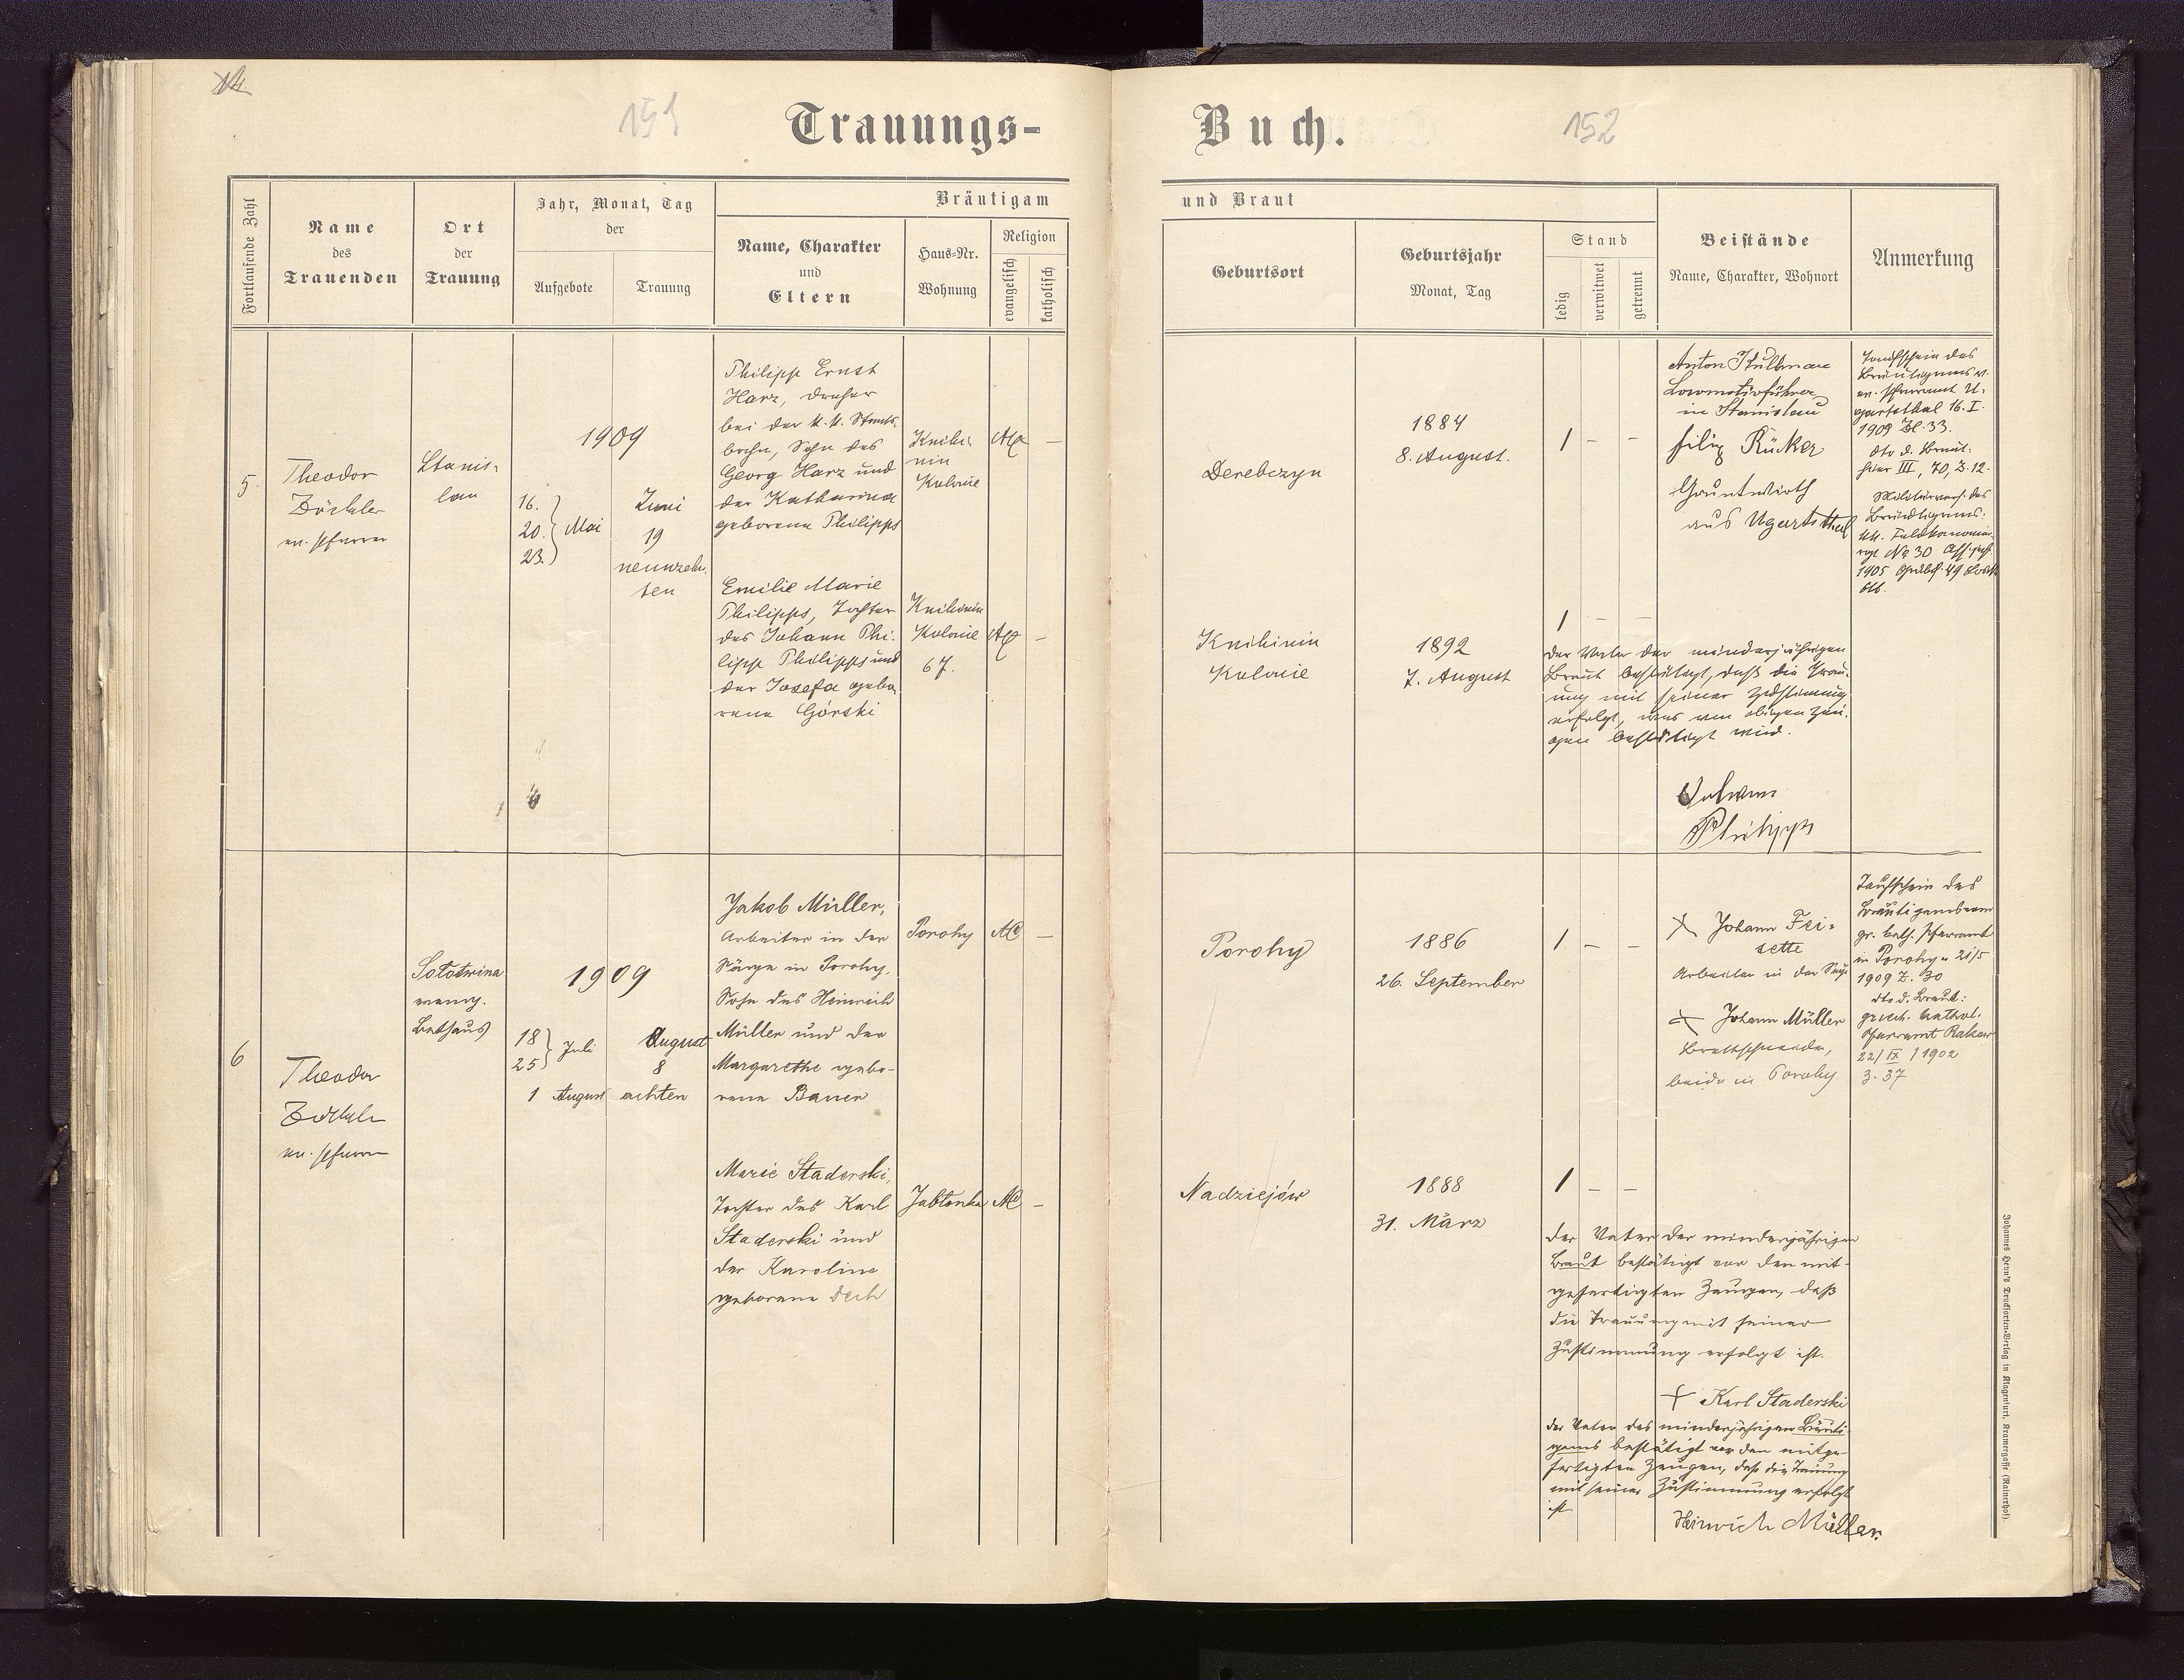 14
151
152
Trauungs-
Buch.
Fortlaufende Zahl
Name
des
Trauenden
Ort
der
Trauung
Jahr, Monat, Tag
der
Aufgebote
Trauung
Bräutigam
Name, Charakter
und
Eltern
Haus-Nr.
Wohnung
Religion
evangelisch
katholisch
und Braut
Geburtsort
Geburtsjahr
Monat, Tag
Stand
ledig
verwitwet
getrennt
Beistände
Name, Charakter, Wohnort
Anmerkung
5.
Theodor
Zöckler
ev. Pfarrer
Stanis-
lau
1909
16.
20. Mai
23.
Juni
19
neunzehn-
ten
Philipp Ernst
Harz, Dreher
bei der k. k. Staats-
bahn, Sohn des
Georg Harz und
der Katharina
geborene Philipps
Knihi-
nin
Kolonie
AC
–
Emilie Marie
Philipps, Tochter
des Johann Phi-
lipp Philipps und
der Josefa gebo-
rene Górski
Knihinin
Kolonie
67.
AC
–
Derebczyn
1884
8. August.
1 – –
Anton Kullman
Locomotivführer
in Stanislau
Filip Rücker
Gruntwirth
aus Ugartsthal
Taufschein des
Bräutigams v.
ev. Pfarramt U-
gartsthal 16. I.
1909 Zl. 33.
dto d. Braut:
III, 70, Z. 12.
Bräutigams:
No 30
1905 49
Knihinin
Kolonie
1892
7. August
1 – –
Der Vater der minderjährigen
Braut bestätigt, daß die Trau-
ung mit seiner Zustimmung
erfolgt, was von obigen Zeu-
gen bestätigt wird.
Johann
Philipps
6
Theodor
Zöckler
ev. Pfarrer
Sołotwina
evang.
Bethaus
1909
18
25 Juli
1 August
August
8
achten
Jakob Müller,
Arbeiter in der
Säge in Porohy,
Sohn des Heinrich
Müller und der
Margarethe gebo-
rene Bauer
Porohy
AC
–
Marie Staderski,
Tochter des Karl
Staderski und
der Karoline
geborene Dech
Jabłonka
AC
–
Porohy
1886
26. September
1 – –
Johann Fei-
sette
Arbeiter in der Säge
Johann Müller
Brettschneider,
beide in Porohy
Taufschein des
Bräutigams vom
gr. kath. Pfarramt
in Porohy v. 21/5
1909 Z. 30
dto d. Braut:
griech. kathol.
Pfarramt Rakow
22/IX 1902
Z. 37
Nadziejów
1888
31. März
1 – –
Der Vater der minderjährigen
Braut bestätigt vor den mit-
gefertigten Zeugen, daß
die Trauung mit seiner
Zustimmung erfolgt ist.
Karl Staderski
Der Vater des minderjährigen Bräuti-
gams bestätigt vor den mitge-
fertigten Zeugen, daß die Trauung
mit seiner Zustimmung erfolgt
ist
Heinrich Müller.
Johannes Heyn's Drucksorten-Verlag in Klagenfurt, Kramergasse (Rainerhof).